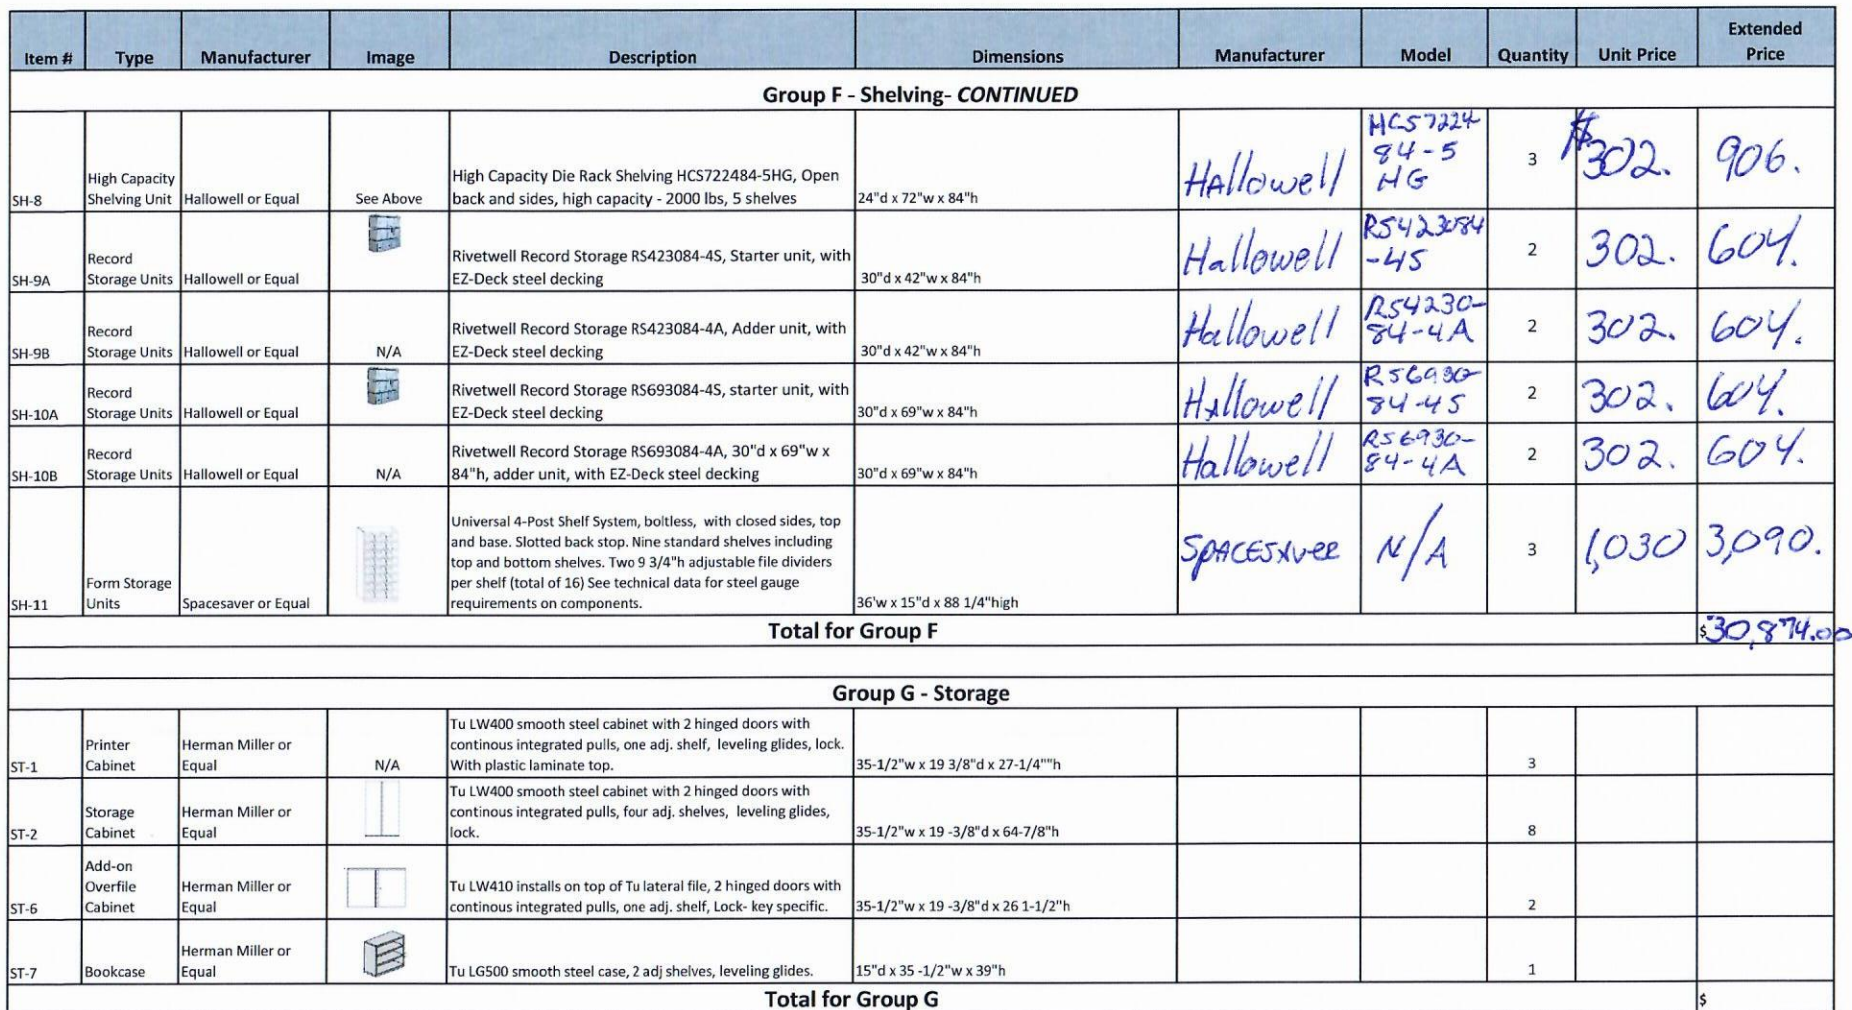 Item # Type Manufacturer Image Description Dimensions Manufacturer Model Quantity Unit Price Extended Price
Group F - Shelving- CONTINUED
SH-8
High Capacity
Shelving Unit
Hallowell or Equal
See Above
High Capacity Die Rack Shelving HCS722484-5HG, Open
back and sides, high capacity - 2000 lbs, 5 shelves
24"d x 72"w x 84"h
HAllowell
HCS7224
84-5
HG
3
$302.
906.
SH-9A
Record
Storage Units
Hallowell or Equal
Rivetwell Record Storage RS423084-4S, Starter unit, with
EZ-Deck steel decking
30"d x 42"w x 84"h
Hallowell
RS423084
-4S
2
302.
604.
SH-9B
Record
Storage Units
Hallowell or Equal
N/A
Rivetwell Record Storage RS423084-4A, Adder unit, with
EZ-Deck steel decking
30"d x 42"w x 84"h
Hallowell
RS4230-
84-4A
2
302.
604.
SH-10A
Record
Storage Units
Hallowell or Equal
Rivetwell Record Storage RS693084-4S, starter unit, with
EZ-Deck steel decking
30"d x 69"w x 84"h
HAllowell
RS6930-
84-4S
2
302.
604.
SH-10B
Record
Storage Units
Hallowell or Equal
N/A
Rivetwell Record Storage RS693084-4A, 30"d x 69"w x
84"h, adder unit, with EZ-Deck steel decking
30"d x 69"w x 84"h
Hallowell
RS6930-
84-4A
2
302.
604.
SH-11
Form Storage
Units
Spacesaver or Equal
Universal 4-Post Shelf System, boltless, with closed sides, top
and base. Slotted back stop. Nine standard shelves including
top and bottom shelves. Two 9 3/4"h adjustable file dividers
per shelf (total of 16) See technical data for steel gauge
requirements on components.
36'w x 15"d x 88 1/4"high
SPACESAVER
N/A
3
1,030
3,090.
Total for Group F
$30,874.00
Group G - Storage
ST-1
Printer
Cabinet
Herman Miller or
Equal
N/A
Tu LW400 smooth steel cabinet with 2 hinged doors with
continous integrated pulls, one adj. shelf, leveling glides, lock.
With plastic laminate top.
35-1/2"w x 19 3/8"d x 27-1/4""h
3
ST-2
Storage
Cabinet
Herman Miller or
Equal
Tu LW400 smooth steel cabinet with 2 hinged doors with
continous integrated pulls, four adj. shelves, leveling glides,
lock.
35-1/2"w x 19 -3/8"d x 64-7/8"h
8
ST-6
Add-on
Overfile
Cabinet
Herman Miller or
Equal
Tu LW410 installs on top of Tu lateral file, 2 hinged doors with
continous integrated pulls, one adj. shelf, Lock- key specific.
35-1/2"w x 19 -3/8"d x 26 1-1/2"h
2
ST-7
Bookcase
Herman Miller or
Equal
Tu LG500 smooth steel case, 2 adj shelves, leveling glides.
15"d x 35 -1/2"w x 39"h
1
Total for Group G
$